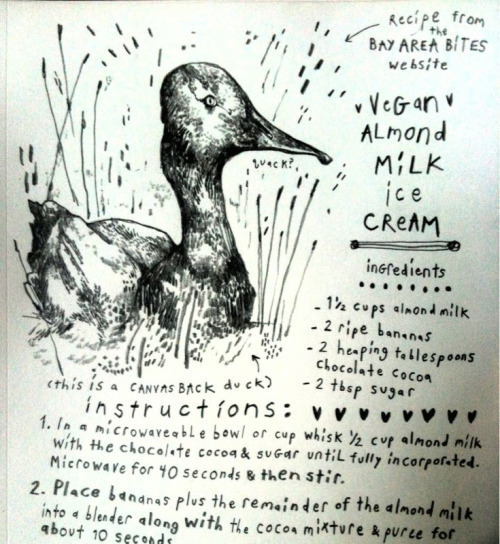 Recipe from
the
BAY AREA BITES
website
Vegan
Almond
Milk
ice
Cream
quack?
ingredients
- 1½ cups almond milk
- 2 ripe bananas
- 2 heaping tablespoons
chocolate cocoa
- 2 tbsp sugar
(this is a CANVASBACK duck)
instructions:
1. In a microwaveable bowl or cup whisk ½ cup almond milk
with the chocolate cocoa & sugar until fully incorporated.
Microwave for 40 seconds & then stir.
2. Place bananas plus the remainder of the almond milk
into a blender along with the cocoa mixture & puree for
about 10 seconds